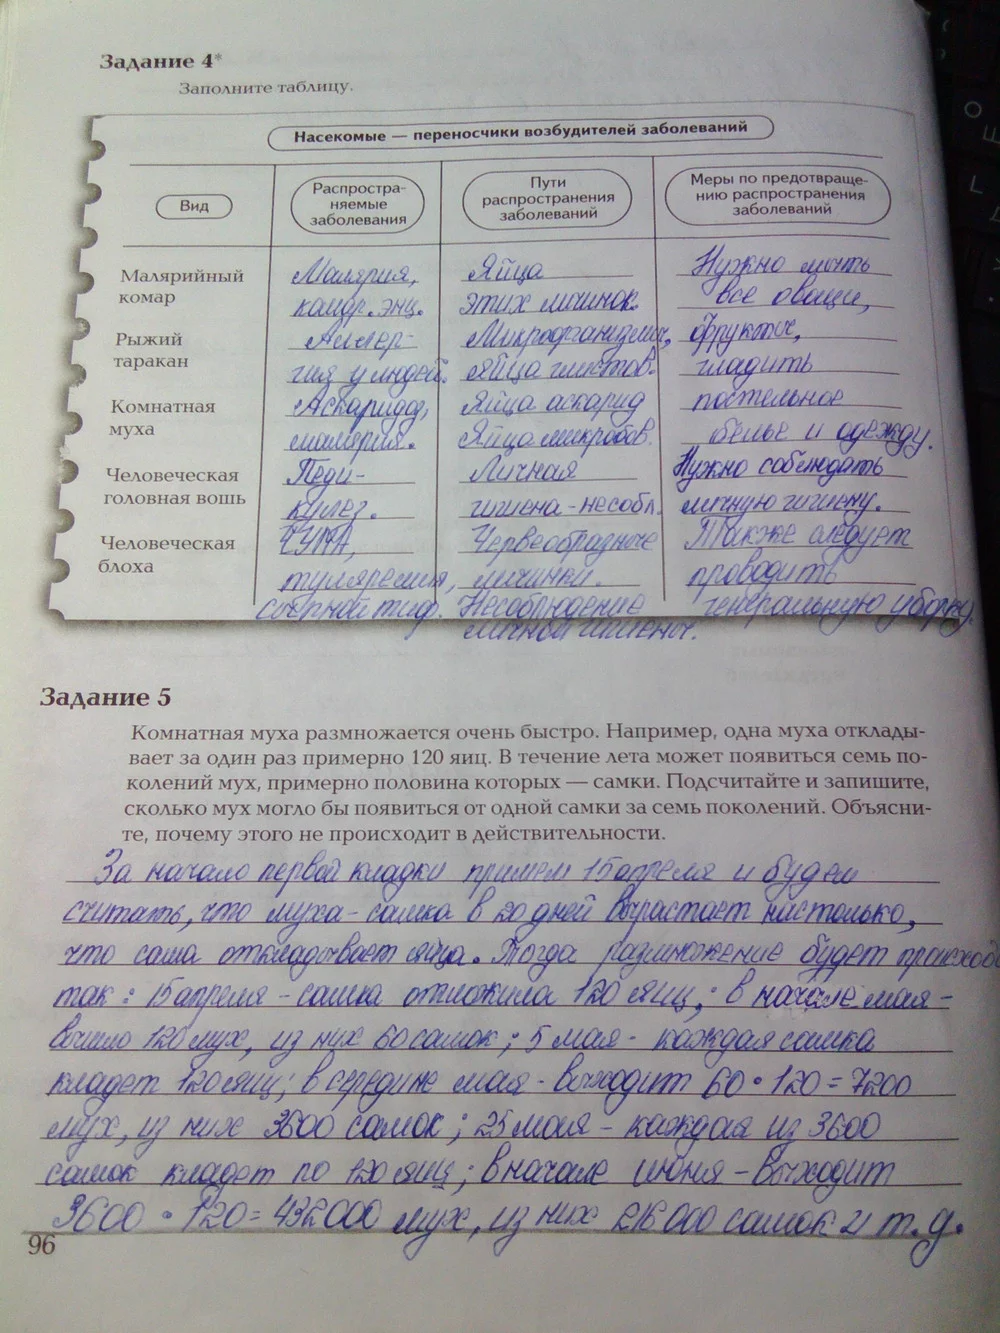 Задание 4*
Заполните таблицу.
Насекомые — переносчики возбудителей заболеваний
Вид
Распростра-
няемые
заболевания
Пути
распространения
заболеваний
Меры по предотвраще-
нию распространения
заболеваний
Малярийный
комар
Малярия,
комар. энц.
Яйца
этих личинок.
Нужно мыть
все овощи,
Рыжий
таракан
Аллер-
гия у людей.
Микроорганизмы,
яйца глистов.
фрукты,
гладить
Комнатная
муха
Аскаридоз,
малярия.
Яйца аскарид
Яйца микробов.
постельное
белье и одежду.
Человеческая
головная вошь
Педи-
кулез.
Личная
гигиена - несобл.
Нужно соблюдать
личную гигиену.
Человеческая
блоха
ЧУМА,
туляремия,
сыпной тиф.
Червеобразные
личинки.
Несоблюдение
личной гигиены.
Также следует
проводить
генеральную уборку.
Задание 5
Комнатная муха размножается очень быстро. Например, одна муха отклады-
вает за один раз примерно 120 яиц. В течение лета может появиться семь по-
колений мух, примерно половина которых — самки. Подсчитайте и запишите,
сколько мух могло бы появиться от одной самки за семь поколений. Объясни-
те, почему этого не происходит в действительности.
За начало первой кладки примем 15 апреля и будем
считать, что муха - самка в 20 дней вырастает настолько,
что сама откладывает яйца. Тогда размножение будет происход
так: 15 апреля - самка отложила 120 яиц; в начале мая -
вышло 120 мух, из них 60 самок; 5 мая - каждая самка
кладет 120 яиц; в середине мая - выходит 60 · 120 = 7200
мух, из них 3600 самок; 25 мая - каждая из 3600
самок кладет по 120 яиц; в начале июня - выходит
3600 · 120 = 432000 мух, из них 216000 самок и т. д.
96